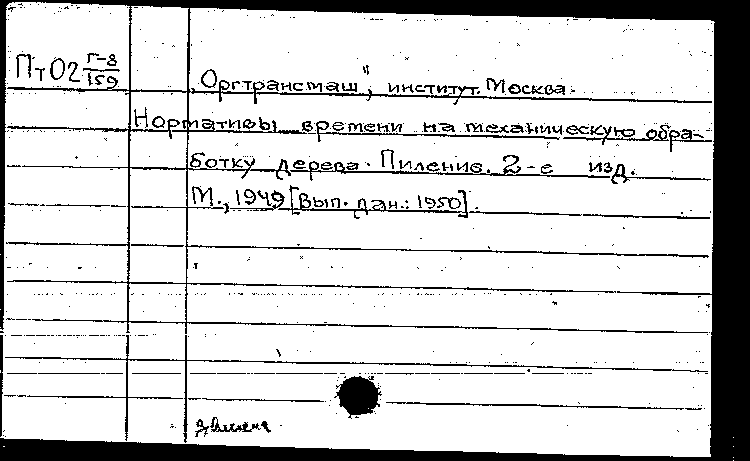 ПтО2 Г-8/159
„Оргтрансмаш", институт. Москва.
Нормативы времени на механическую обра-
ботку дерева. Пиление. 2-е изд.
М., 1949 [Вып. дан.: 1950].